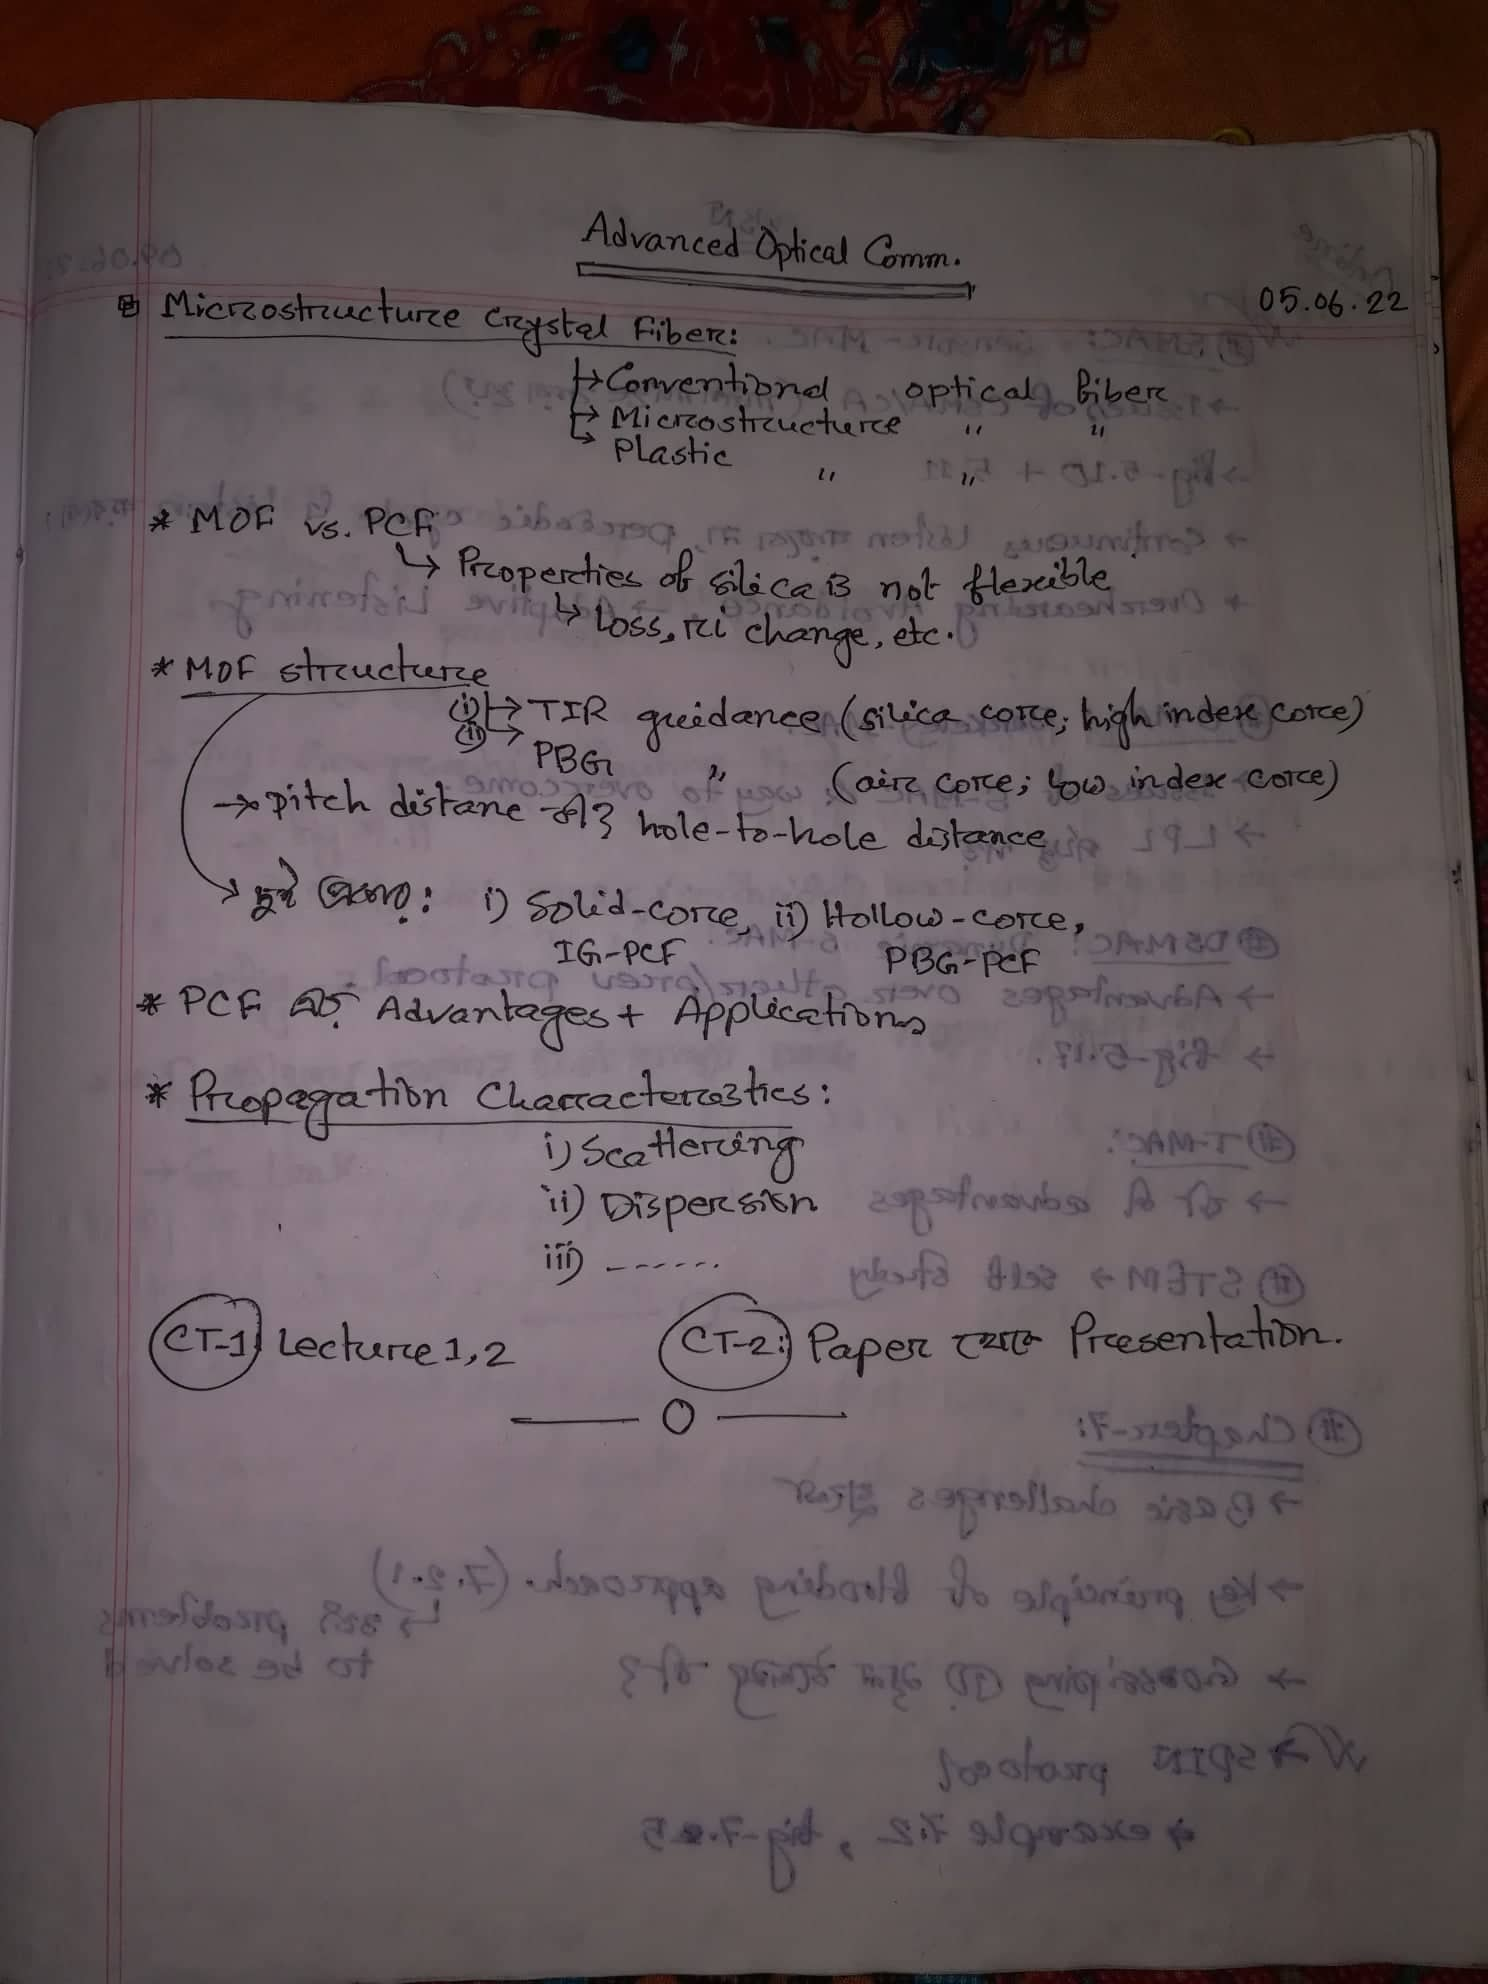 Advanced Optical Comm.
05.06.22
Microstructure Crystal Fiber:
→ Conventional optical fiber
→ Microstructure " "
→ Plastic " "
* MOF vs. PCF:
↳ Properties of silica is not flexible
↳ Loss, ri change, etc.
* MOF structure
(i) → TIR guidance (silica core; high index core)
(ii) → PBG " (air core; low index core)
→ pitch distane কী? hole-to-hole distance
→ দুই প্রকার: i) Solid-core, ii) Hollow-core,
IG-PCF PBG-PCF
* PCF এর Advantages + Applications
* Propagation Characterestics:
i) Scattering
ii) Dispersion
iii) ------
CT-1: Lecture 1, 2 CT-2: Paper থেকে Presentation.